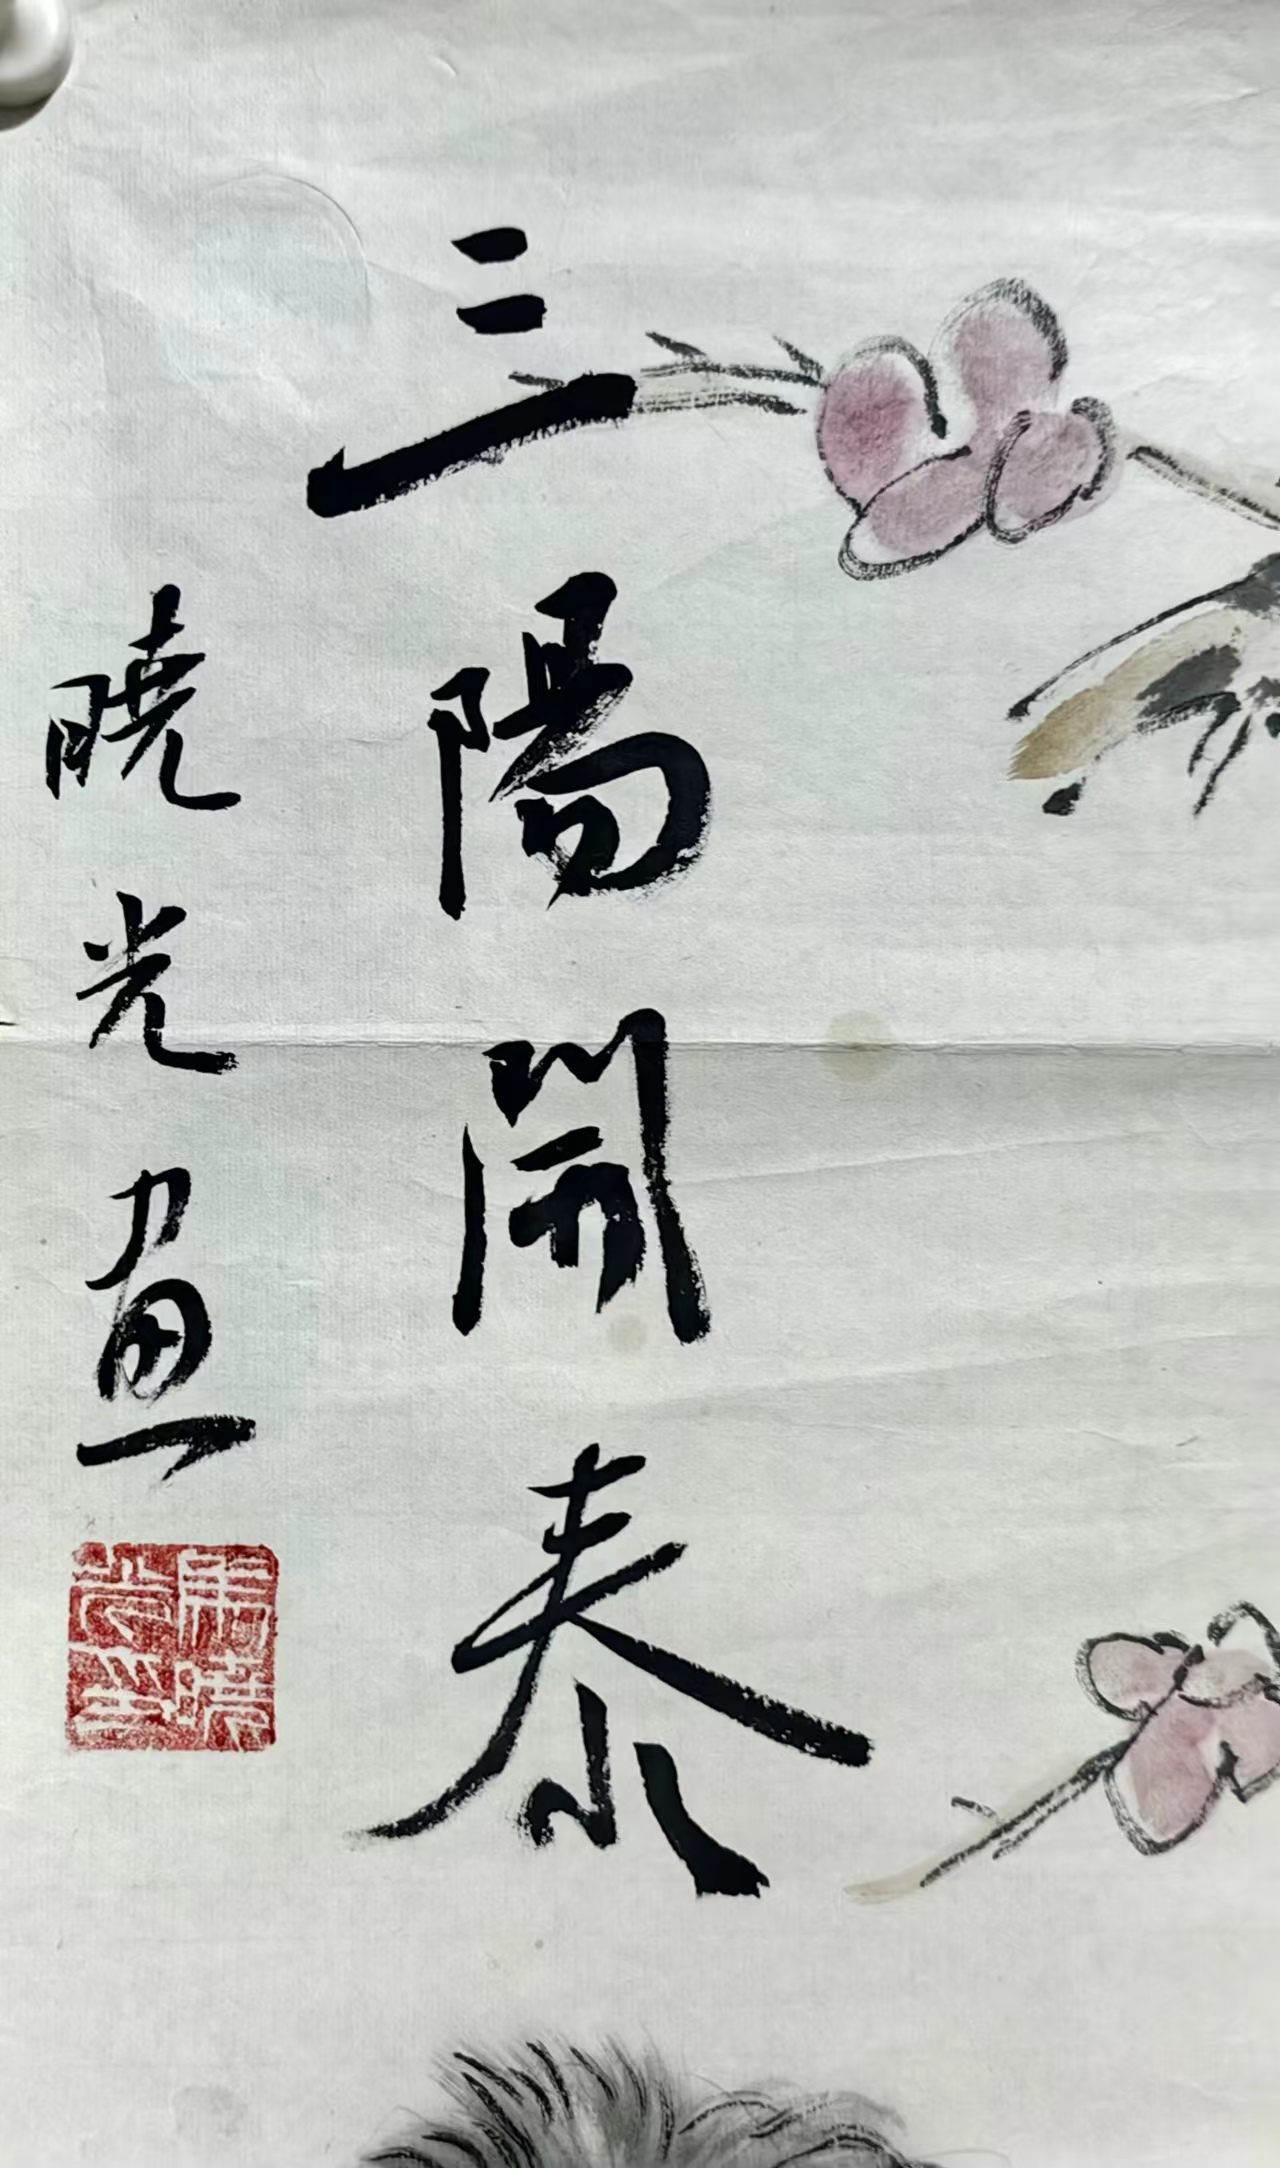 三陽開泰
曉光画